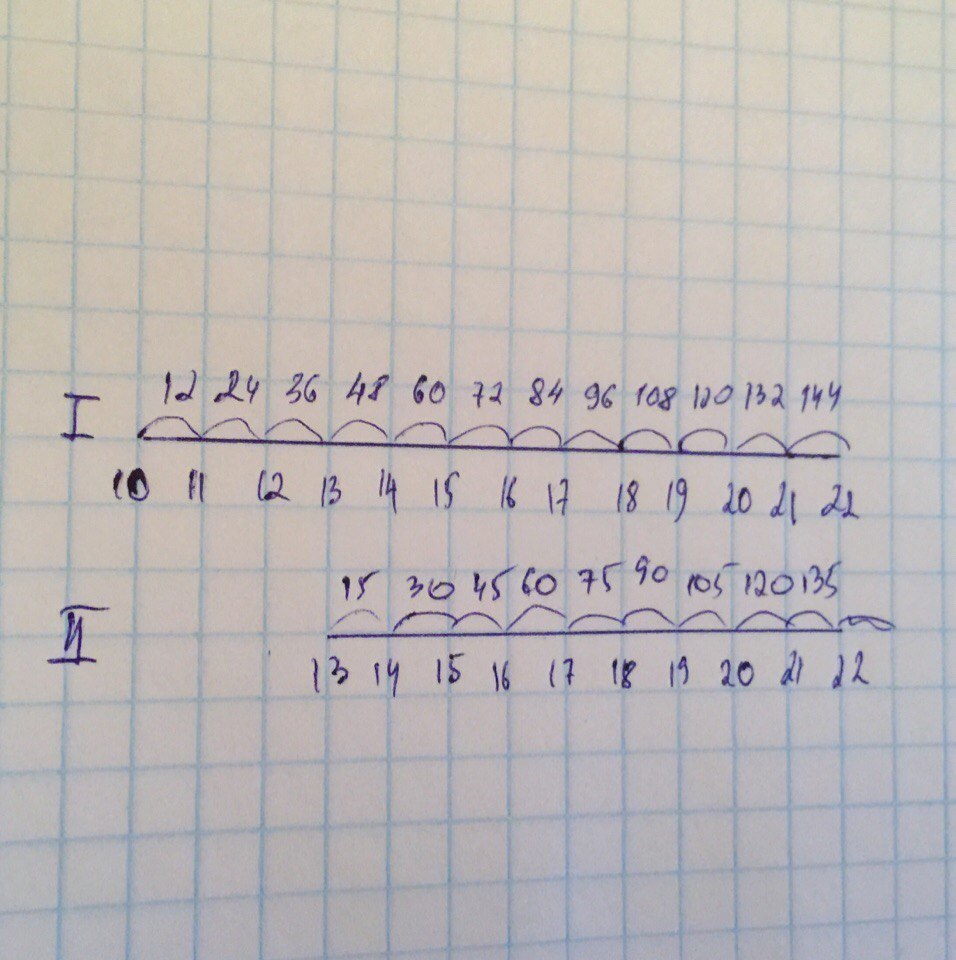 I 12 24 36 48 60 72 84 96 108 120 132 144
10 11 12 13 14 15 16 17 18 19 20 21 22
II 15 30 45 60 75 90 105 120 135
13 14 15 16 17 18 19 20 21 22